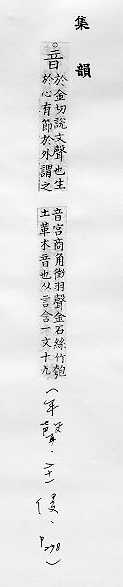 集韻
。音
於金切說文聲也生
於心有節於外謂之
音宮商角徵羽聲金石絲竹匏
土革木音也从言含一文十九
（平聲．二十一侵．P278）